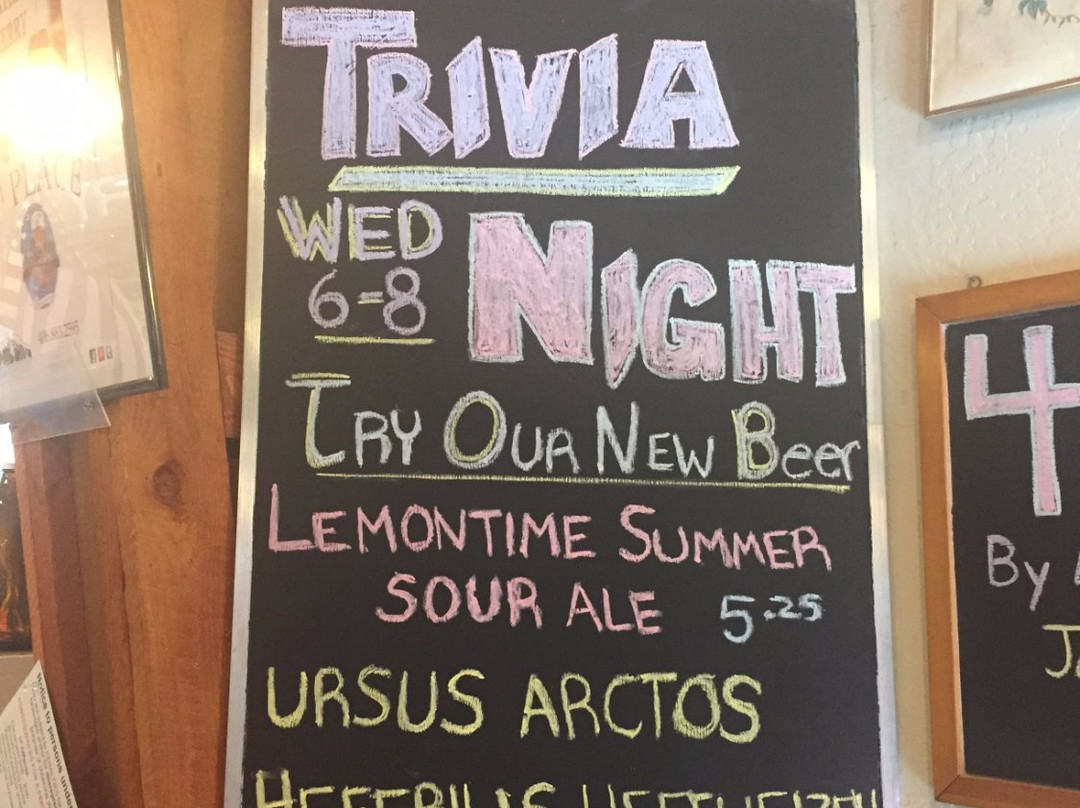 TRIVIA
WED
6-8
NIGHT
TRY OUR NEW Beer
LEMONTIME SUMMER
SOUR ALE 5.25
URSUS ARCTOS
4
By
PLACE
Notice to persons under